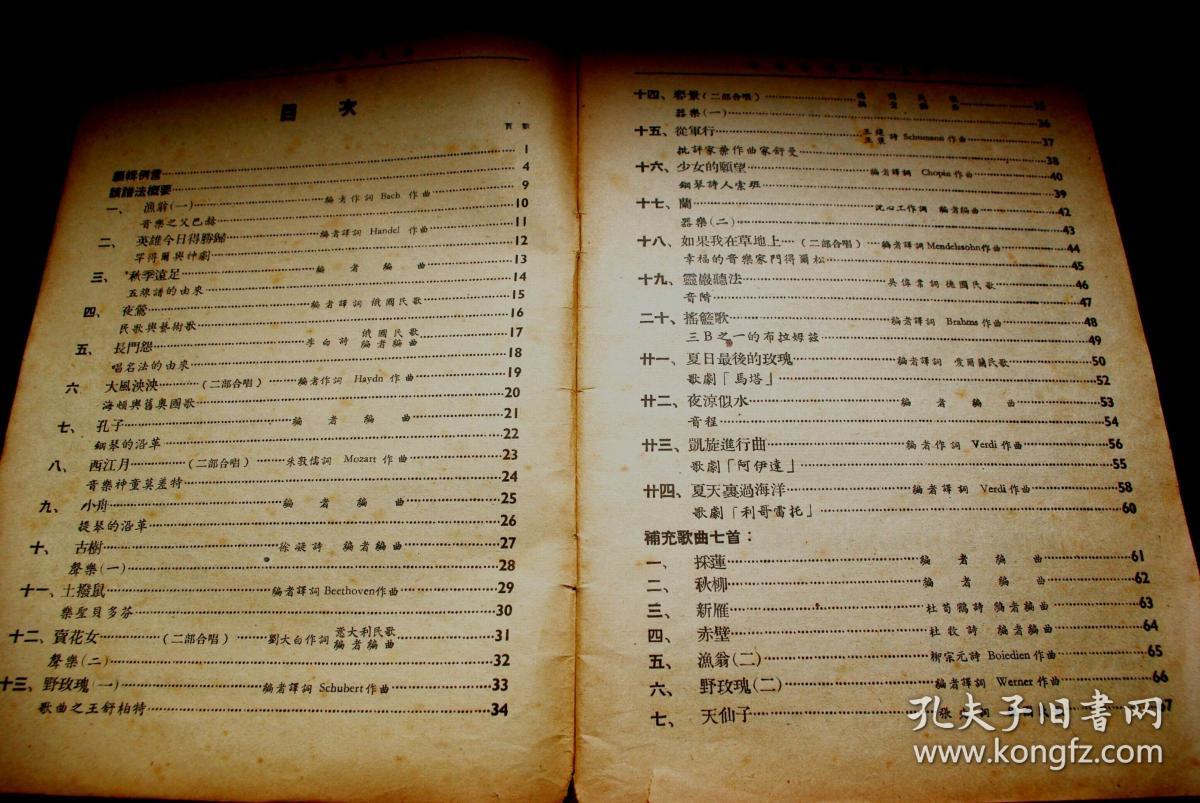 目次
頁數
編輯例言 1
讀譜法概要 4
一、 漁翁(一) 編者作詞 Bach 作曲 9
音樂之父巴赫 10
二、 英雄今日得勝歸 編者譯詞 Handel 作曲 11
罕得爾與神劇 12
三、 秋季遠足 編者編曲 13
五線譜的由來 14
四、 夜鶯 編者譯詞 俄國民歌 15
民歌與藝術歌 16
五、 長門怨 李白詩 俄國民歌 編者編曲 17
唱名法的由來 18
六 大風泱泱 (二部合唱) 編者作詞 Haydn 作曲 19
海頓與舊奧國歌 20
七、 孔子 編者編曲 21
鋼琴的沿革 22
八、 西江月 (二部合唱) 朱敦儒詞 Mozart 作曲 23
音樂神童莫差特 24
九、 小舟 編者編曲 25
提琴的沿革 26
十、 古樹 徐凝詩 編者編曲 27
聲樂(一) 28
十一、土撥鼠 編者譯詞 Beethoven作曲 29
樂聖貝多芬 30
十二、賣花女 (二部合唱) 劉大白作詞 意大利民歌 編者編曲 31
聲樂(二) 32
十三、野玫瑰(一) 編者譯詞 Schubert作曲 33
歌曲之王舒柏特 34
十四、春景(二部合唱)
器樂(一) 36
十五、從軍行 詩 Schumann 作曲 37
批評家兼作曲家舒曼 38
十六、少女的願望 編者譯詞 Chopin 作曲 40
鋼琴詩人蕭班 39
十七、蘭 沈心工作詞 編者編曲 42
器樂(二) 43
十八、如果我在草地上 (二部合唱) 編者譯詞Mendelssohn作曲 44
幸福的音樂家門得爾松 45
十九、靈巖聽法 吳偉業詞 德國民歌 46
音階 47
二十、搖籃歌 編者譯詞 Brahms作曲 48
三B之一的布拉姆茲 49
廿一、夏日最後的玫瑰 編者譯詞 愛爾蘭民歌 50
歌劇「馬塔」 52
廿二、夜涼似水 編者編曲 53
音程 54
廿三、凱旋進行曲 編者作詞 Verdi作曲 56
歌劇「阿伊達」 55
廿四、夏天裏過海洋 編者譯詞 Verdi作曲 58
歌劇「利哥雷托」 60
補充歌曲七首：
一、 採蓮 編者編曲 61
二、 秋柳 編者編曲 62
三、 新雁 杜荀鶴詩 編者編曲 63
四、 赤壁 杜牧詩 編者編曲 64
五、 漁翁(二) 柳宗元詩 Boiedien 作曲 65
六、 野玫瑰(二) 編者譯詞 Werner 作曲 66
七、 天仙子 張 詞 67
孔夫子旧書网
www.kongfz.com